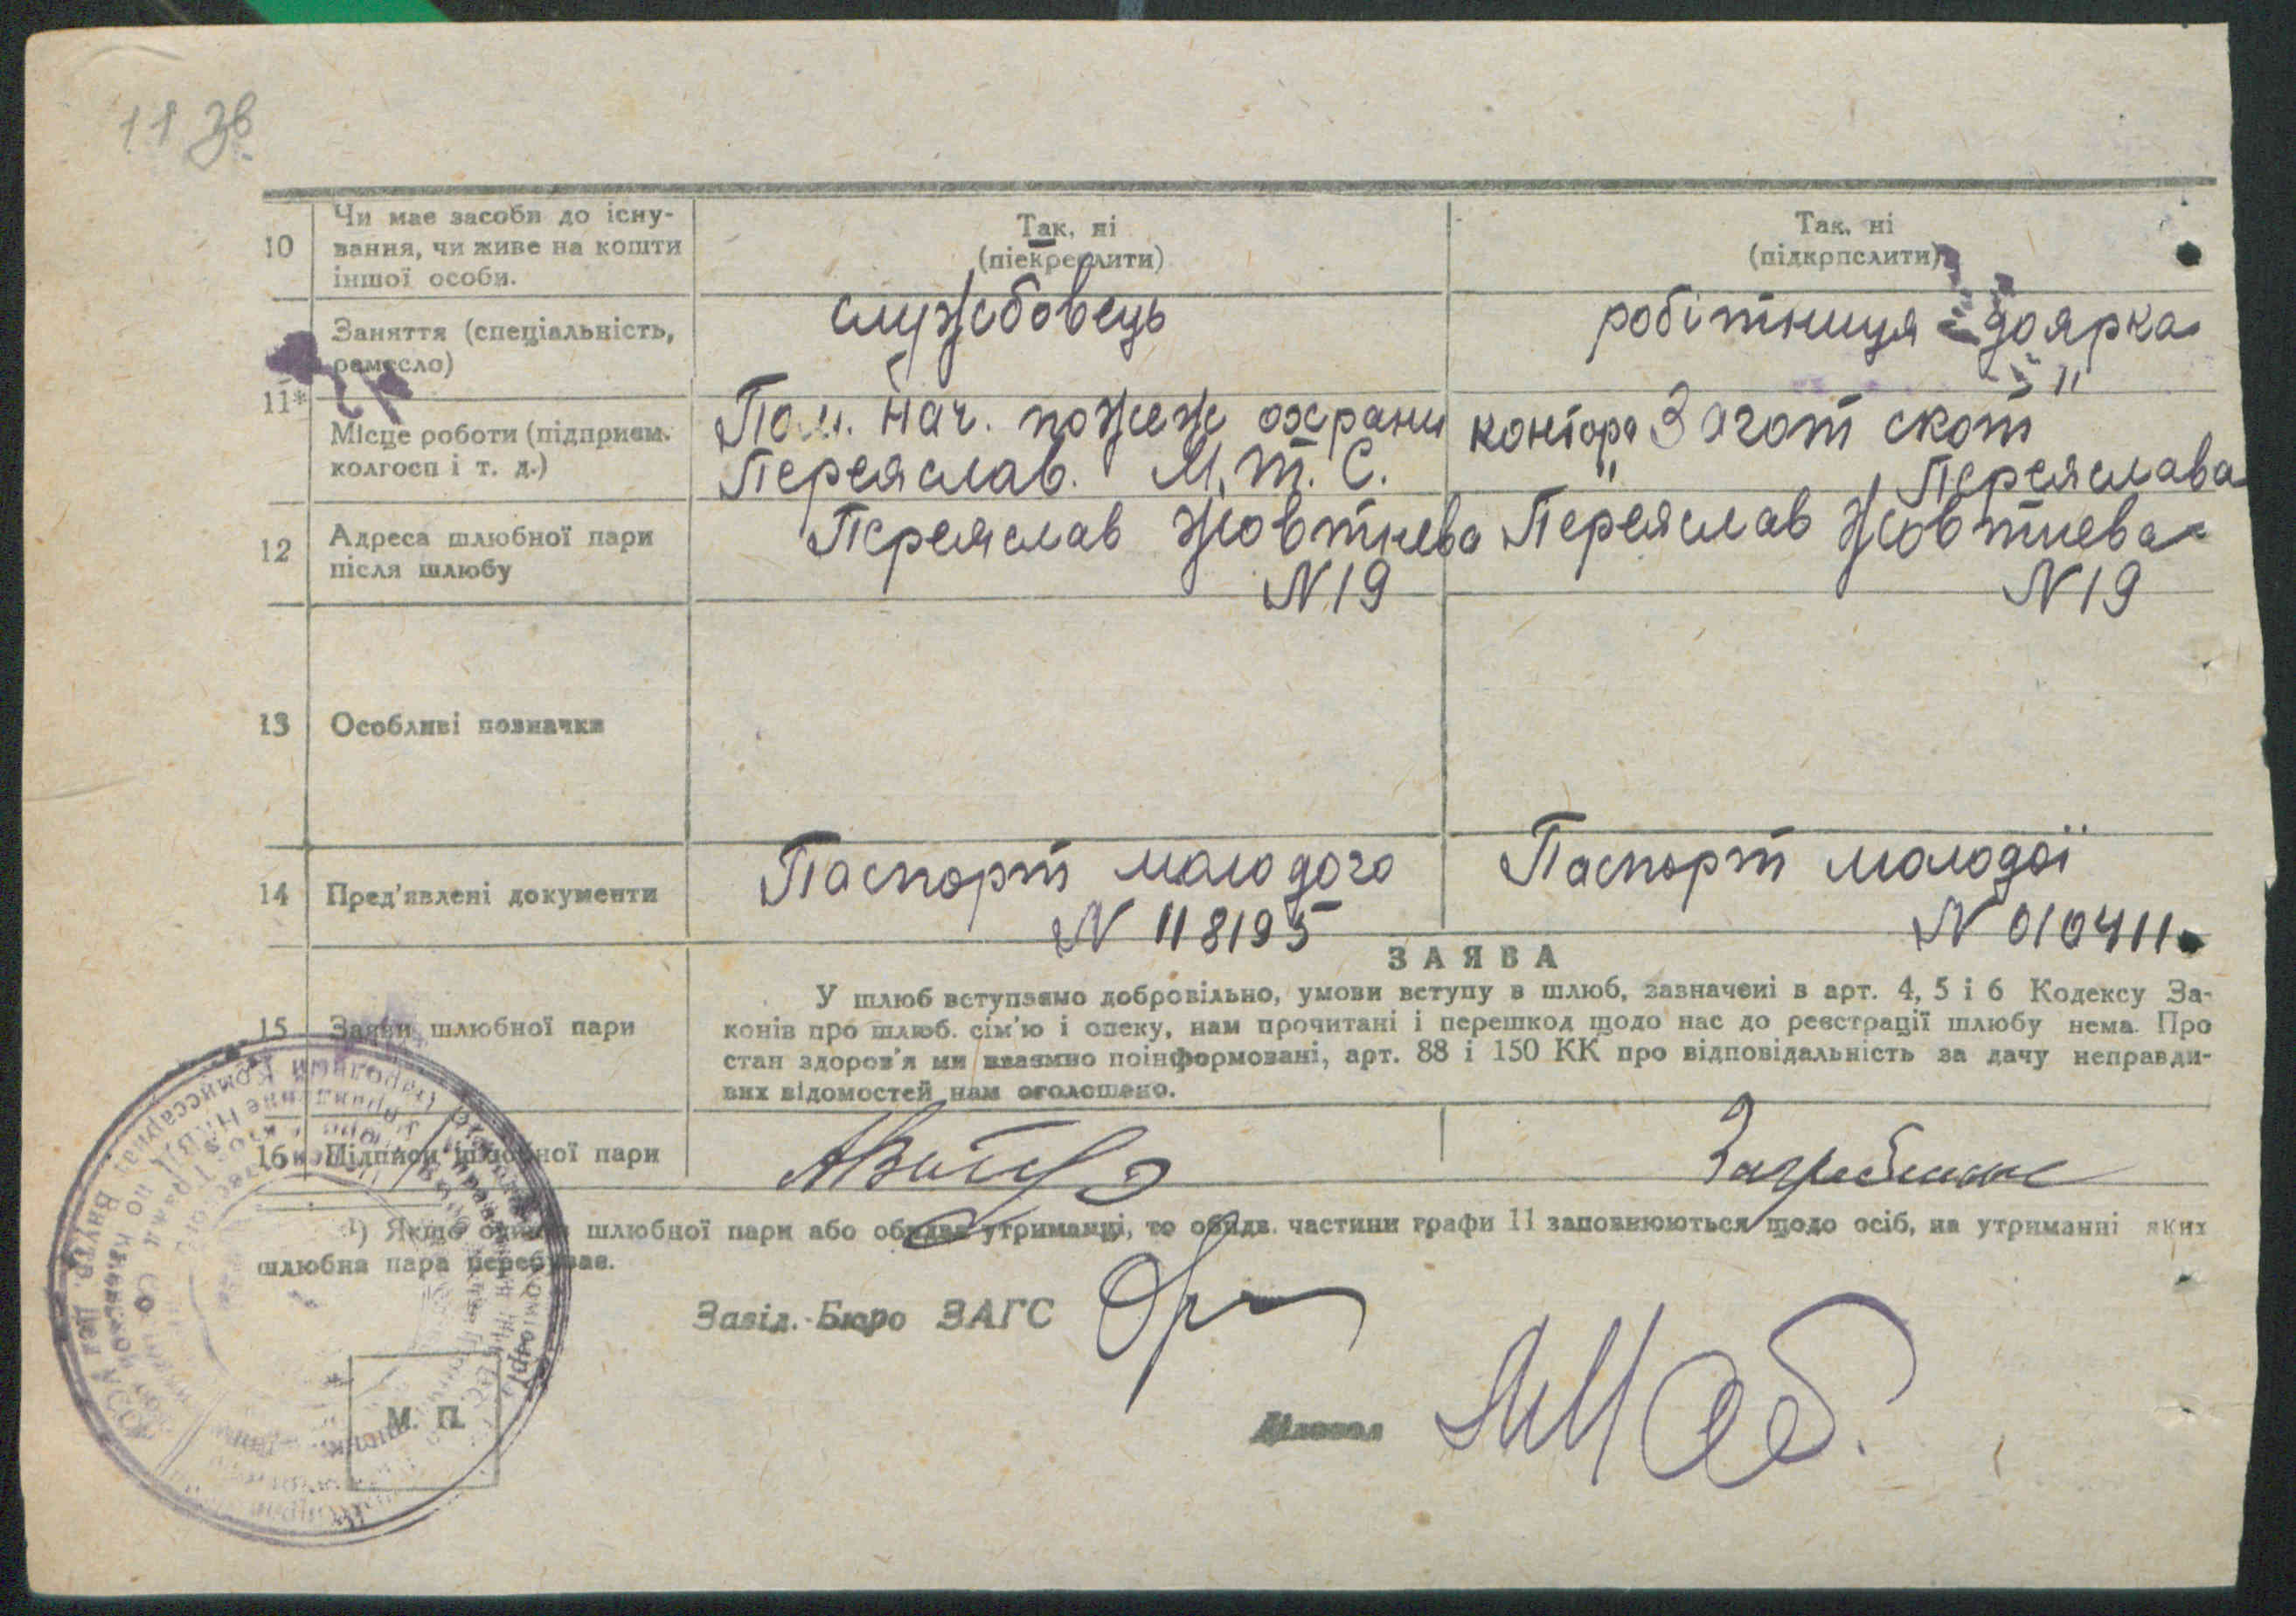 11 зв.
10 Чи має засоби до існу-
вання, чи живе на кошти
іншої особи.
Так, ні
(піекреслити)
Так, ні
(підкрпслити)
11*
Заняття (спеціальність,
ремесло)
службовець
робітниця доярка
Місце роботи (підприєм.
колгосп і т. д.)
Пом. Нач. пожеж охрани
Переяслав. М.т.С.
контора "Заготскот"
Переяслава
12 Адреса шлюбної пари
після шлюбу
Переяслав Жовтнева
N 19
Переяслав Жовтнева
N 19
13 Особливі позначки
14 Пред'явлені документи
Паспорт молодого
N 118195
Паспорт молодої
N 010411
15 Заяви шлюбної пари
ЗАЯВА
У шлюб вступаємо добровільно, умови вступу в шлюб, зазначені в арт. 4, 5 і 6 Кодексу За-
конів про шлюб. сім'ю і опеку, нам прочитані і перешкод щодо нас до реєстрації шлюбу нема. Про
стан здоров'я ми взаємно поінформовані, арт. 88 і 150 КК про відповідальність за дачу неправди-
вих відомостей нам оголошено.
16 Підписи шлюбної пари
¹) Якщо один з шлюбної пари або обидва утриманці, то обидв. частини графи 11 заповнюються щодо осіб, на утриманні яких
шлюбна пара перебуває.
Завід. Бюро ЗАГС
Діловод
М. П.